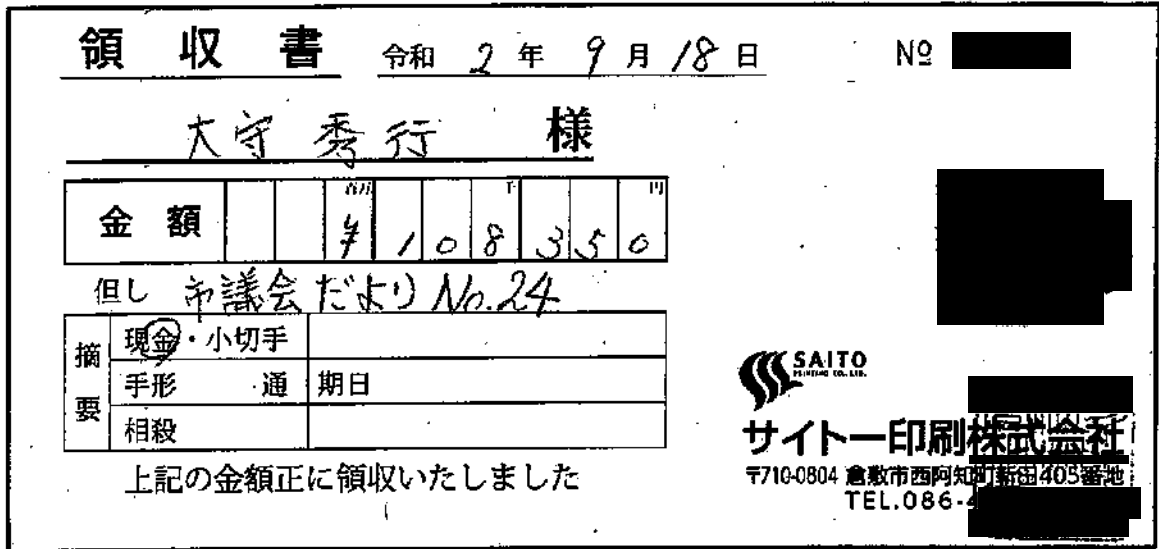 領収書 令和 2 年 9 月 18 日 №
大守 秀行 様
金額 百万 千 円
¥108350
但し 市議会だより No.24
摘要
現金・小切手
手形 通 期日
相殺
上記の金額正に領収いたしました
SAITO
PRINTING CO.,LTD.
サイトー印刷株式会社
〒710-0804 倉敷市西阿知町新田405番地
TEL.086-4